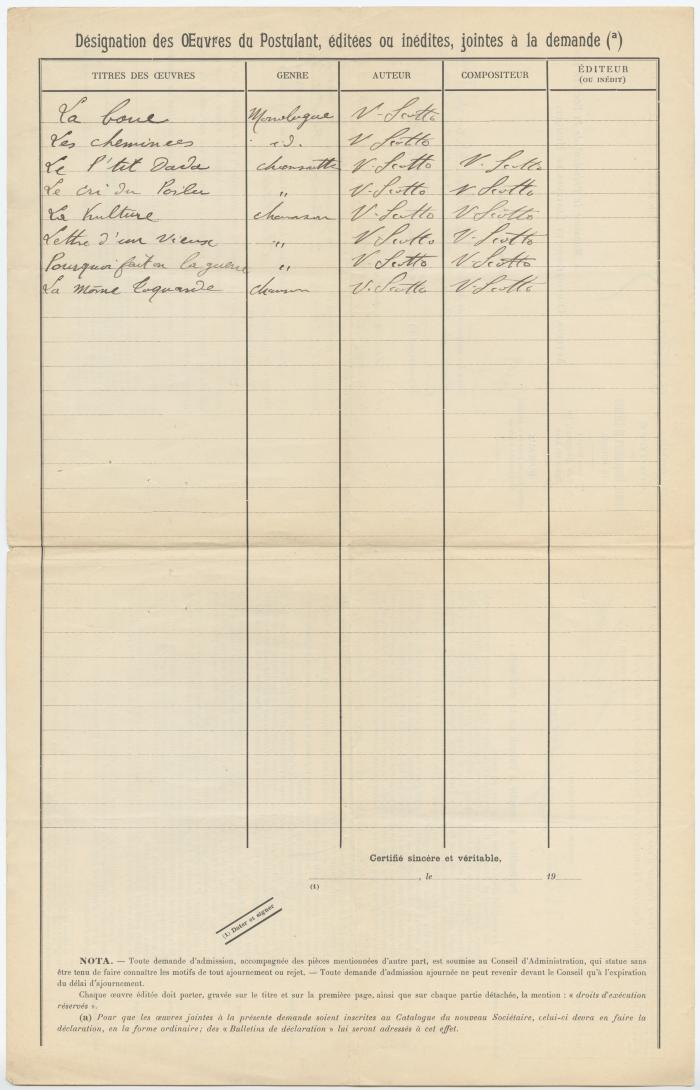 Désignation des Œuvres du Postulant, éditées ou inédites, jointes à la demande (a)
TITRES DES ŒUVRES GENRE AUTEUR COMPOSITEUR ÉDITEUR (OU INÉDIT)
La boue Monologue V. Scotto
Les cheminées id. V Scotto
Le P'tit Dada chansonette V. Scotto V. Scotto
Le cri du Poilu " V. Scotto V Scotto
La Kulture chanson V. Scotto V Scotto
Lettre d'un vieux " V. Scotto V. Scotto
Pourquoi fait on la guerre " V. Scotto V Scotto
La môme chanson V. Scotto V. Scotto
Certifié sincère et véritable,
, le 19
(1)
(1) Dater et signer
NOTA. — Toute demande d'admission, accompagnée des pièces mentionnées d'autre part, est soumise au Conseil d'Administration, qui statue sans
être tenu de faire connaître les motifs de tout ajournement ou rejet. — Toute demande d'admission ajournée ne peut revenir devant le Conseil qu'à l'expiration
du délai d'ajournement.
Chaque œuvre éditée doit porter, gravée sur le titre et sur la première page, ainsi que sur chaque partie détachée, la mention : « droits d'exécution
réservés ».
(a) Pour que les œuvres jointes à la présente demande soient inscrites au Catalogue du nouveau Sociétaire, celui-ci devra en faire la
déclaration, en la forme ordinaire; des « Bulletins de déclaration » lui seront adressés à cet effet.